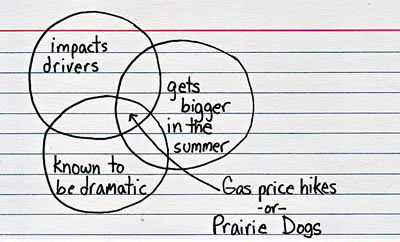 impacts
drivers
gets
bigger
in the
summer
known to
be dramatic
Gas price hikes
-or-
Prairie Dogs